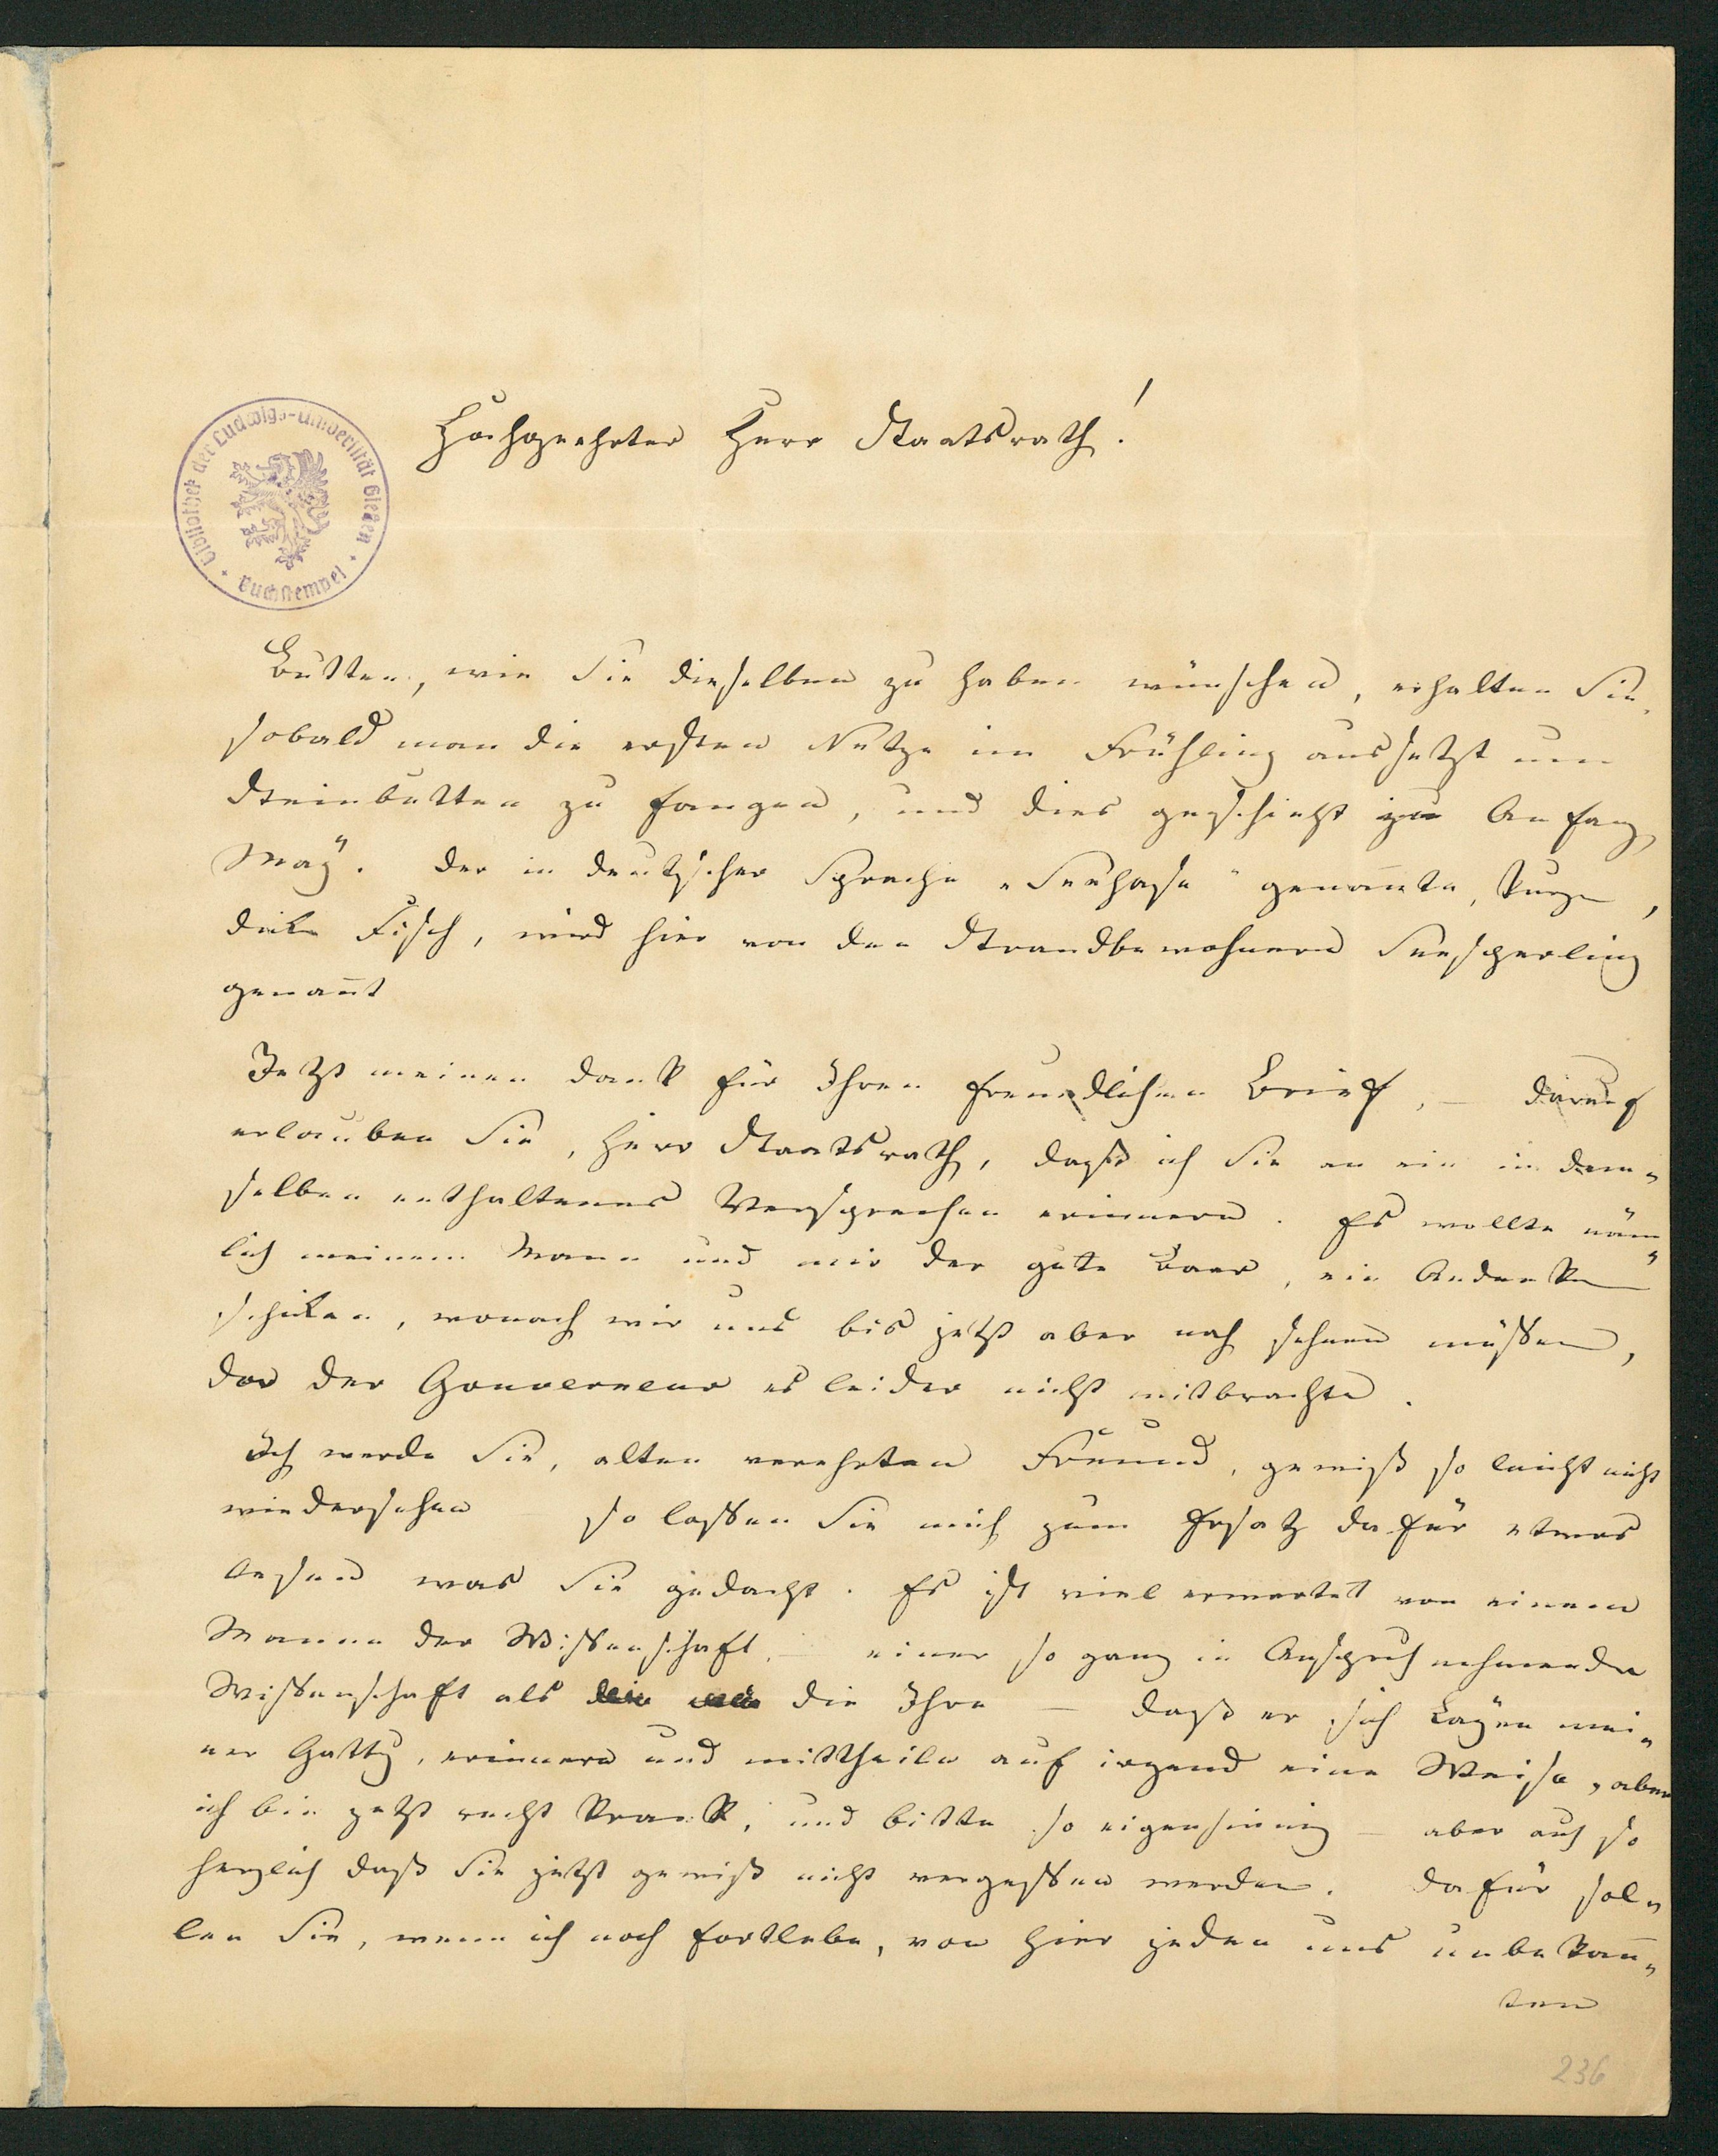 Hochgeehrter Herr Staatsrath!
Bibliothek der Ludwigs-Universität Gießen
Buchstempel
Butten, wie Sie dieselben zu haben wünschen, erhalten Sie,
sobald man die ersten Netze im Frühling aussetzt um
Steinbutten zu fangen, und dies geschieht zu Anfang
May. Der in deutscher Sprache „Seehase“ genannte, kurze,
dicke Fisch, wird hier von den Strandbewohnern Seesperling
genannt
Jetzt meinen Dank für Ihren freundlichen Brief, – darauf
erlauben Sie, Herr Staatsrath, daß ich Sie an ein in dem-
selben enthaltenes Versprechen erinnere. Es wollte näm-
lich meinem Mann und mir der gute Baer, ein Andenken
schicken, wonach wir uns bis jetzt aber noch sehnen müssen,
da der Gouverneur es leider nicht mitbrachte.
Ich werde Sie, alten verehrten Freund, gewiß so leicht nicht
wiedersehen – so lassen Sie mich zum Ersatz dafür etwas
lesen was Sie gedacht. Es ist viel erwartet von einem
Manne der Wissenschaft, – einer so ganz in Anspruch nehmenden
Wissenschaft als die Ihre – daß er sich Layen mei-
ner Gattg, erinnern und mittheile auf irgend eine Weise, aber
ich bin jetzt recht krank, und bitte so eigensinnig – aber auch so
herzlich daß Sie jetzt gewiß nicht vergessen werden. Dafür sol-
len Sie, wenn ich noch fortlebe, von hier jeden uns unbekann-
ten
236